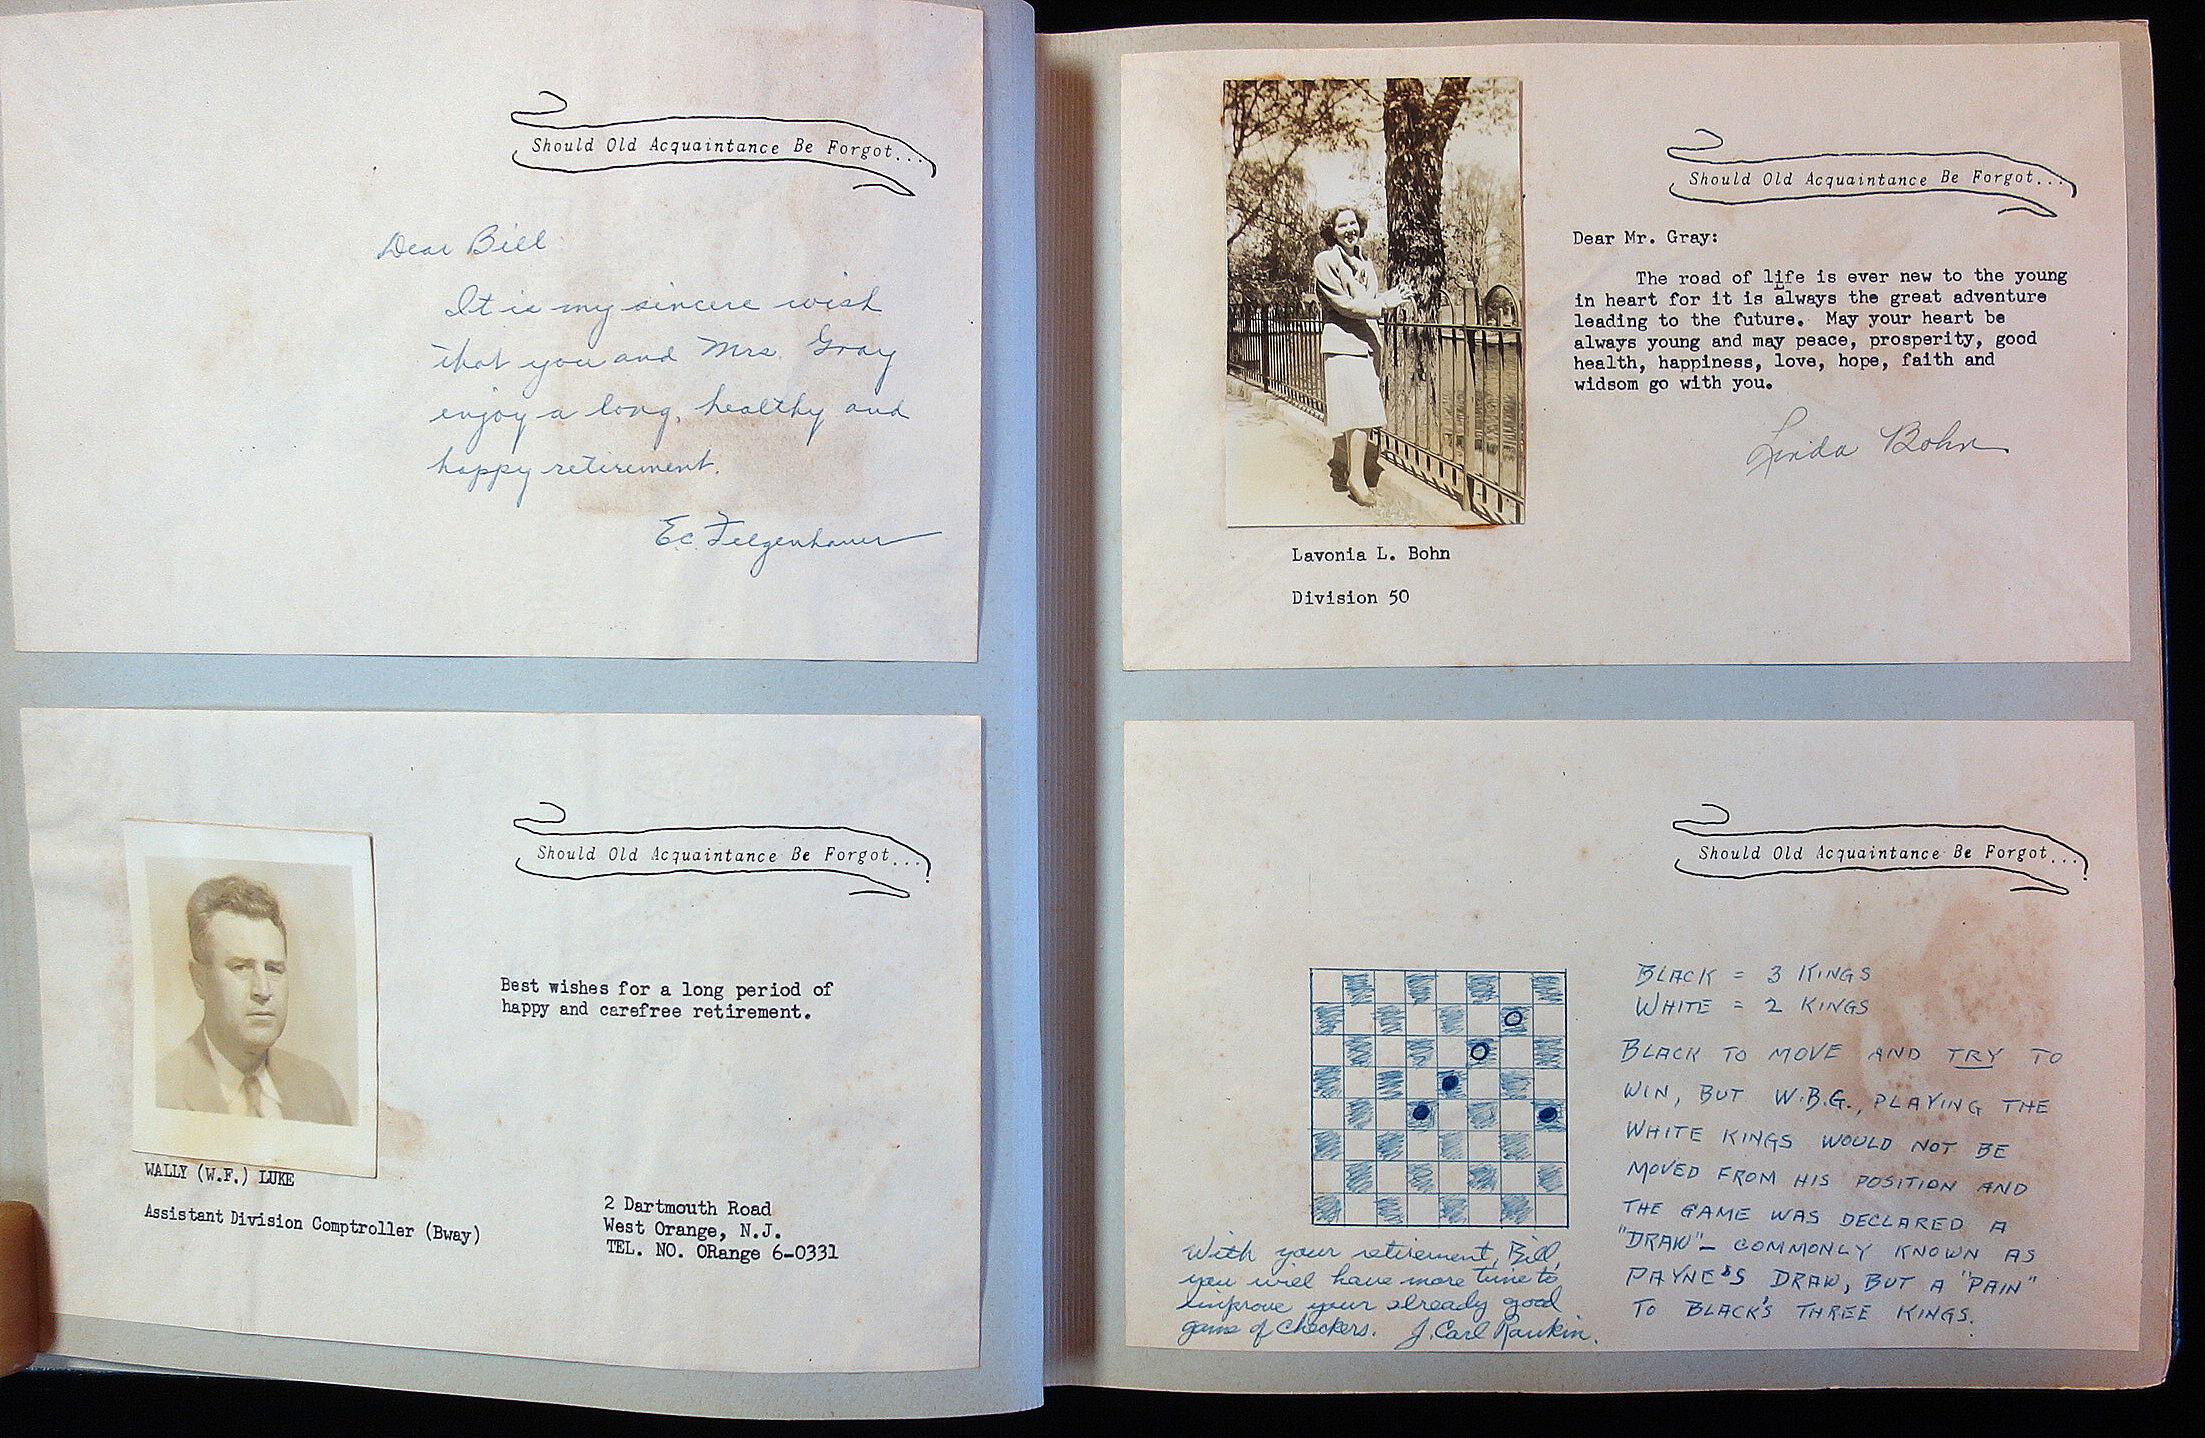 Should Old Acquaintance Be Forgot...
Dear Bill
It is my sincere wish
that you and Mrs. Gray
enjoy a long, healthy and
happy retirement.
E.C. Felgenhauer
Should Old Acquaintance Be Forgot...
Best wishes for a long period of
happy and carefree retirement.
WALLY (W.F.) LUKE
Assistant Division Comptroller (Bway)
2 Dartmouth Road
West Orange, N.J.
TEL. NO. ORange 6-0331
Should Old Acquaintance Be Forgot...
Dear Mr. Gray:
The road of life is ever new to the young
in heart for it is always the great adventure
leading to the future. May your heart be
always young and may peace, prosperity, good
health, happiness, love, hope, faith and
widsom go with you.
Linda Bohn
Lavonia L. Bohn
Division 50
Should Old Acquaintance Be Forgot...
BLACK = 3 KINGS
WHITE = 2 KINGS
BLACK TO MOVE AND TRY TO
WIN, BUT W.B.G., PLAYING THE
WHITE KINGS WOULD NOT BE
MOVED FROM HIS POSITION AND
THE GAME WAS DECLARED A
"DRAW" - COMMONLY KNOWN AS
PAYNE'S DRAW, BUT A "PAIN"
TO BLACK'S THREE KINGS.
With your retirement, Bill,
you will have more time to
improve your already good
game of checkers. J. Carl Rankin.